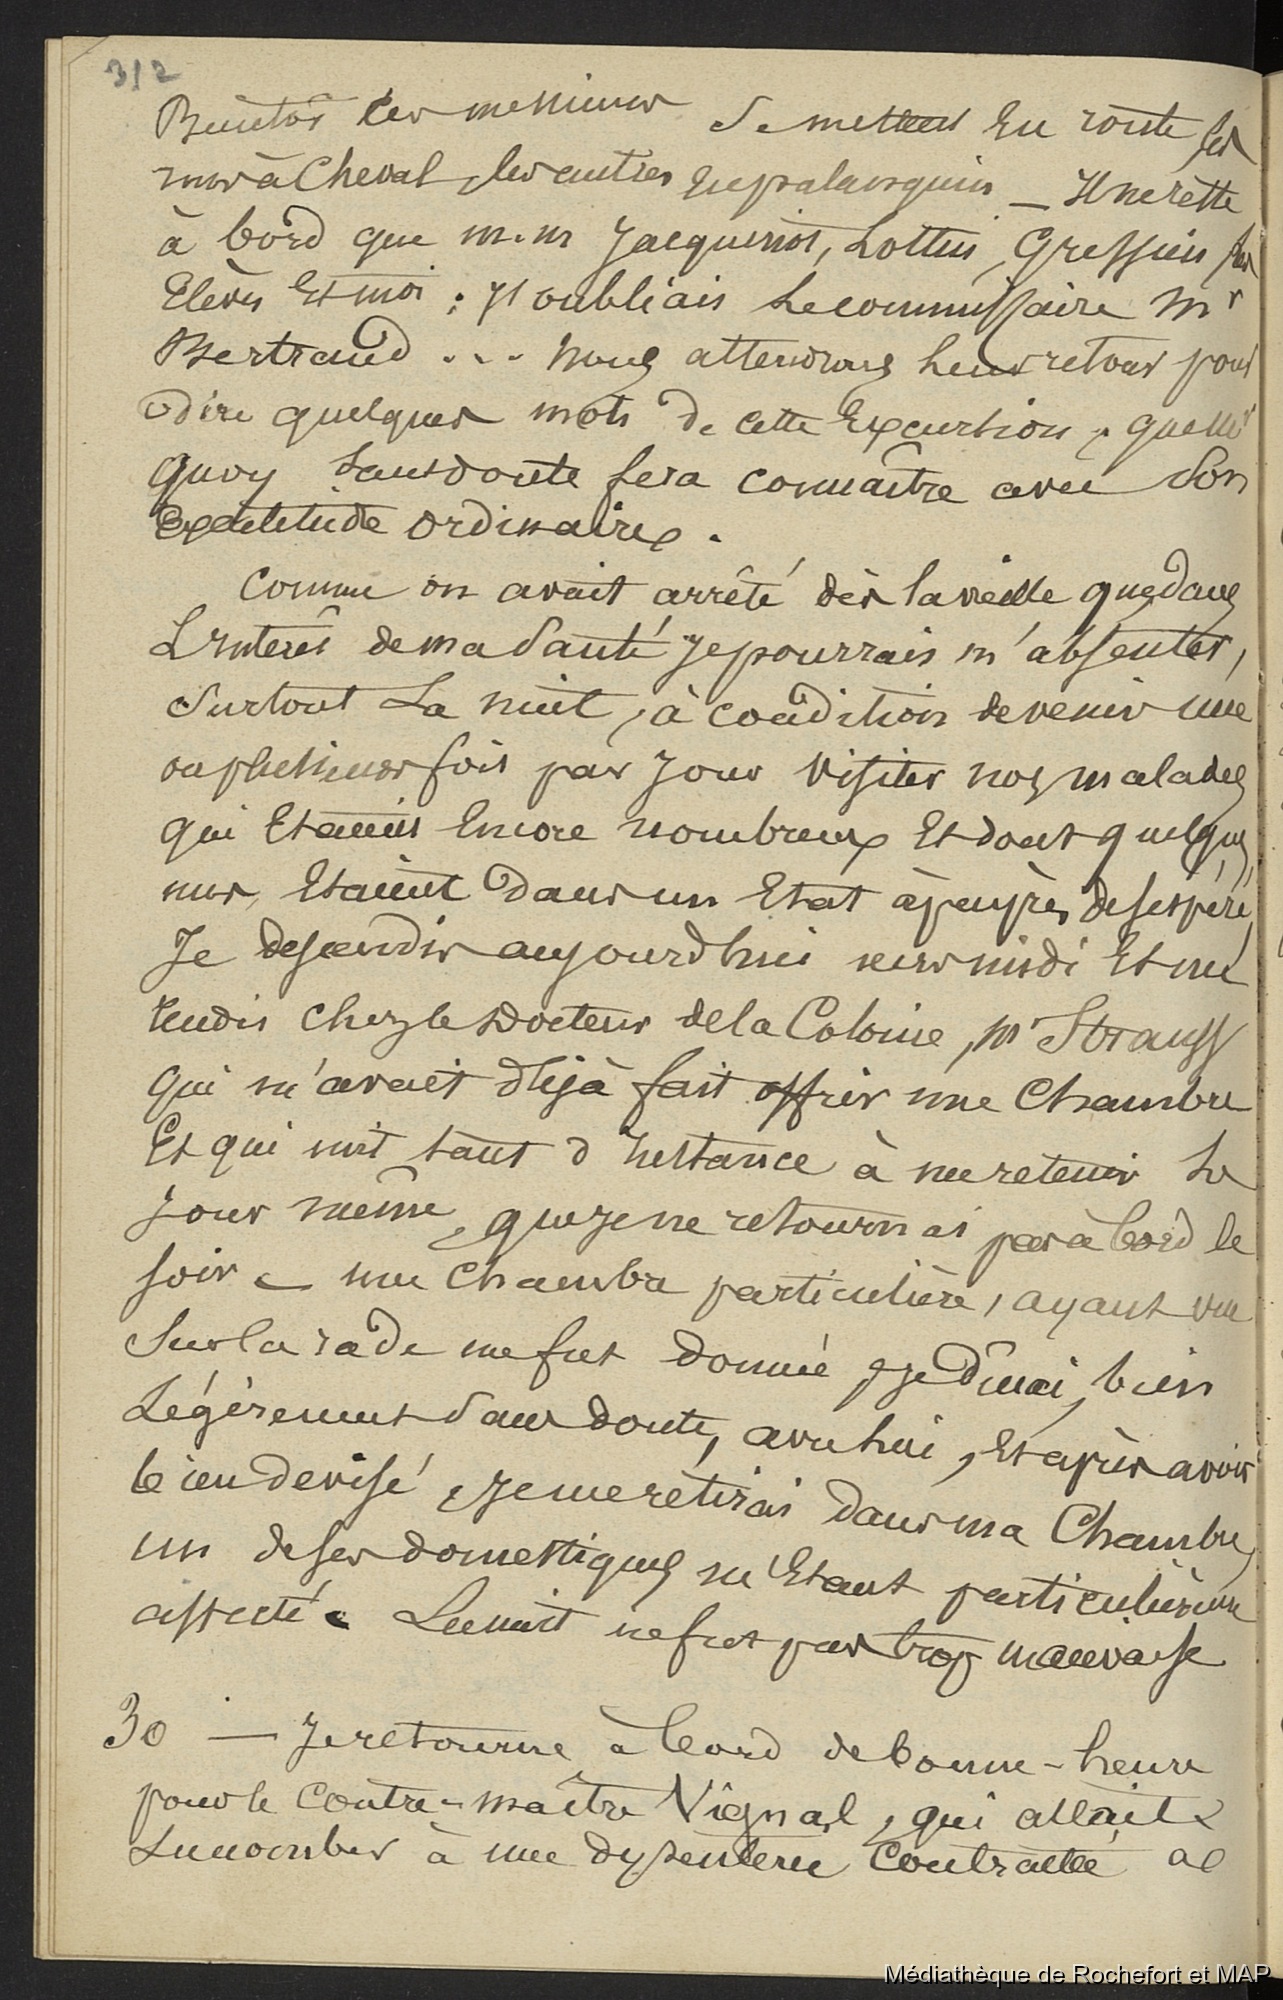 312
Bientôt ces messieurs se mettent En route les
uns à Cheval, les autres En palanquin — Il ne reste
à bord que m.m Jacquinot, Lottin, Gressien les
Elèves Et moi : J'oubliais Le commissaire Mr
Bertrand ... Nous attendrons Leur retour pour
dire quelques mots de cette Excurtion, que Mr
Quoy Sans doute fera connaître avec Son
Exactitude ordinaire.
Comme on avait arrêté dès la veille que dans
L'Interêt de ma Santé Je pourrais m'absenter,
Surtout La nuit, à condition de venir une
ou plusieurs fois par Jour visiter nos malades
qui Etaient Encore nombreux Et dont quelques
uns, Etaient Dans un Etat à peu près desespéré,
Je descendis aujourd'hui vers midi Et me
rendis chez le Docteur de la Colonie, Mr Strauss
qui m'avait déjà fait offrir une Chambre
Et qui mit tant d'Instance à me retenir Le
Jour même, que Je ne retournai pas à bord le
soir — une Chambre particulière, ayant vue
Sur la rade me fut donnée, Je dinai, bien
Légèrement Sans doute, avec lui, Et après avoir
bien devisé, Je me retirai dans ma Chambre,
un de ses domestiques m'Etant particulièrement
affecté. La nuit ne fut pas trop mauvaise
30 — Je retourne à bord de bonne-heure
pour le Contre-maître Vignal, qui allait
Succomber à une dysenterie Contractée à